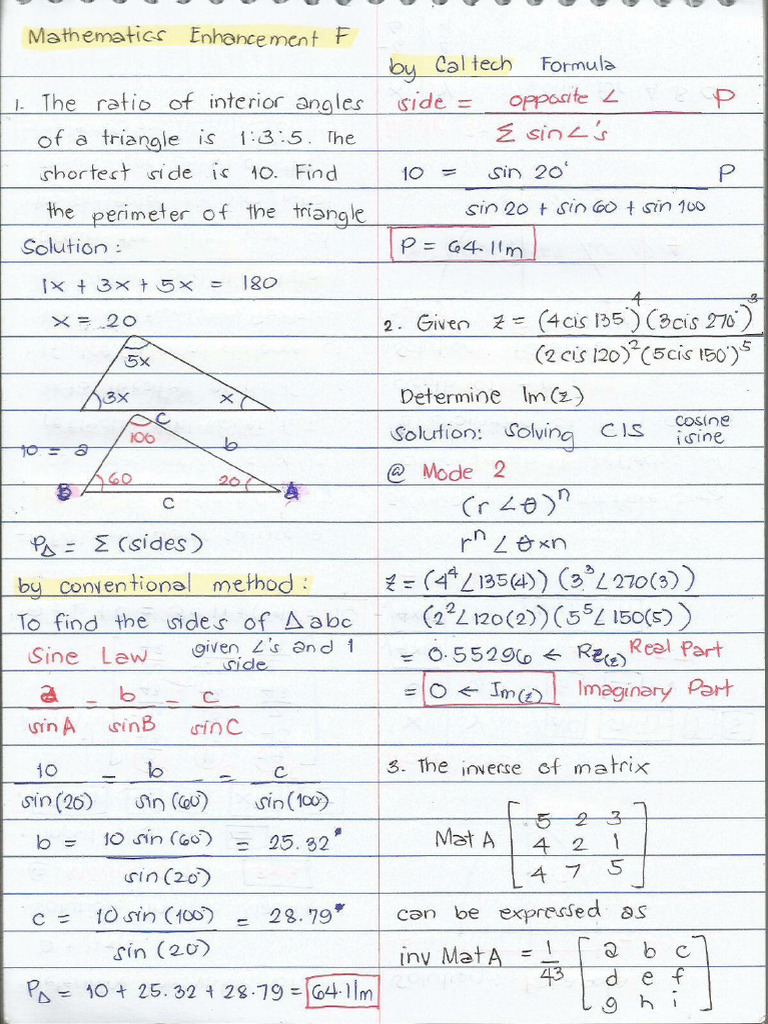 Mathematics Enhancement F
1. The ratio of interior angles
of a triangle is 1:3:5. The
shortest side is 10. Find
the perimeter of the triangle
Solution:
1x + 3x + 5x = 180
x = 20
5x
3x x
c
10 = a 100 b
B 60 20 A
c
P△ = Σ (sides)
by conventional method:
To find the sides of △abc
Sine Law given ∠'s and 1
side
a = b = c
sinA sinB sinC
10 = b = c
sin(20°) sin(60°) sin(100°)
b = 10 sin(60°) = 25.32*
sin(20°)
c = 10 sin(100°) = 28.79*
sin(20°)
P△ = 10 + 25.32 + 28.79 = 64.11m
by Caltech Formula
side = opposite ∠ P
Σ sin∠'s
10 = sin 20° P
sin 20 + sin 60 + sin 100
P = 64.11m
2. Given z = (4cis 135°)⁴(3cis 270°)³
(2cis120)²(5cis 150°)⁵
Determine Im(z)
Solution: Solving CIS cosine
isine
@ Mode 2
(r ∠θ)ⁿ
rⁿ ∠ θ×n
z = (4⁴∠135(4)) (3³∠270(3))
(2²∠120(2))(5⁵∠150(5))
= 0.55296 ← Re(z) Real Part
= 0 ← Im(z) Imaginary Part
3. The inverse of matrix
Mat A [5 2 3
4 2 1
4 7 5]
can be expressed as
inv Mat A = 1/43 [a b c
d e f
g h i]